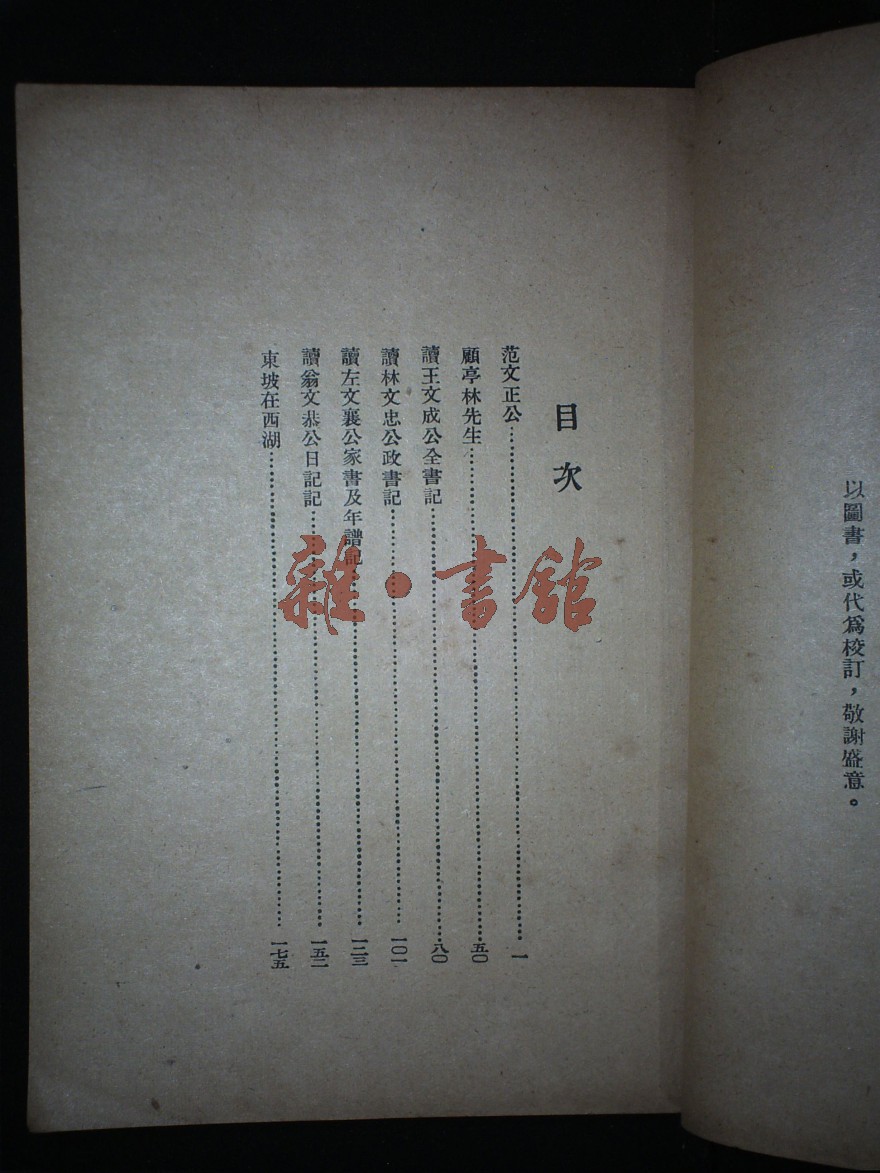 以圖書，或代爲校訂，敬謝盛意。
目次
范文正公……一
顧亭林先生……五〇
讀王文成公全書記……八〇
讀林文忠公政書記……一〇一
讀左文襄公家書及年譜記……一二三
讀翁文恭公日記記……一五二
東坡在西湖……一七五
雜·書館